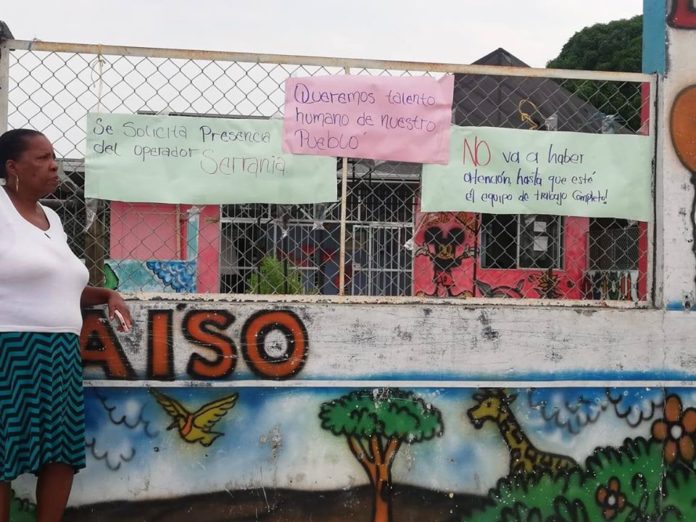 Se Solicita Presencia
del operador Serranía
Queremos talento
humano de nuestro
Pueblo
NO va a haber
atención, hasta que esté
el equipo de trabajo Completo!
AISO